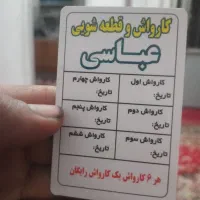 کارواش و قطعه شویی
عباسی
کارواش اول
تاریخ:
کارواش چهارم
تاریخ:
کارواش دوم
تاریخ:
کارواش پنجم
تاریخ:
کارواش سوم
تاریخ:
کارواش ششم
تاریخ:
هر ۶ کارواش یک کارواش رایگان